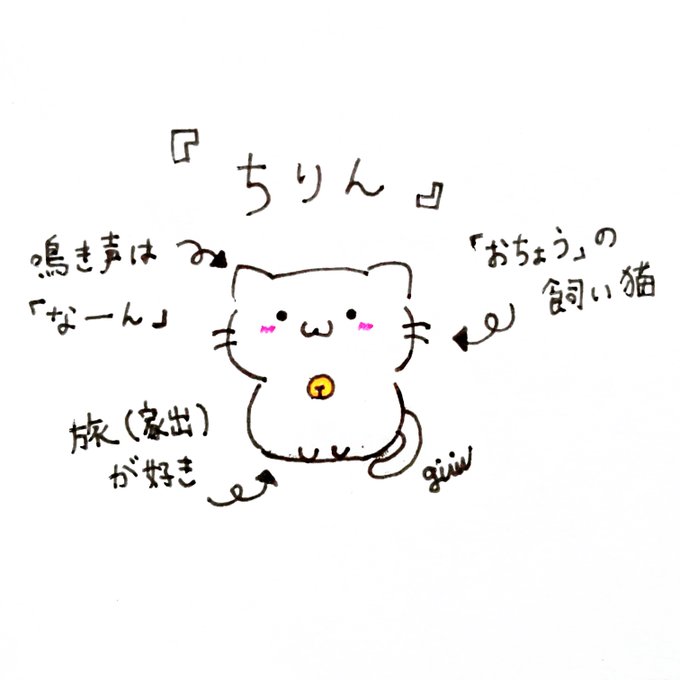 『ちりん』
鳴き声は
「なーん」
「おちょう」の
飼い猫
旅(家出)
が好き
giiiv